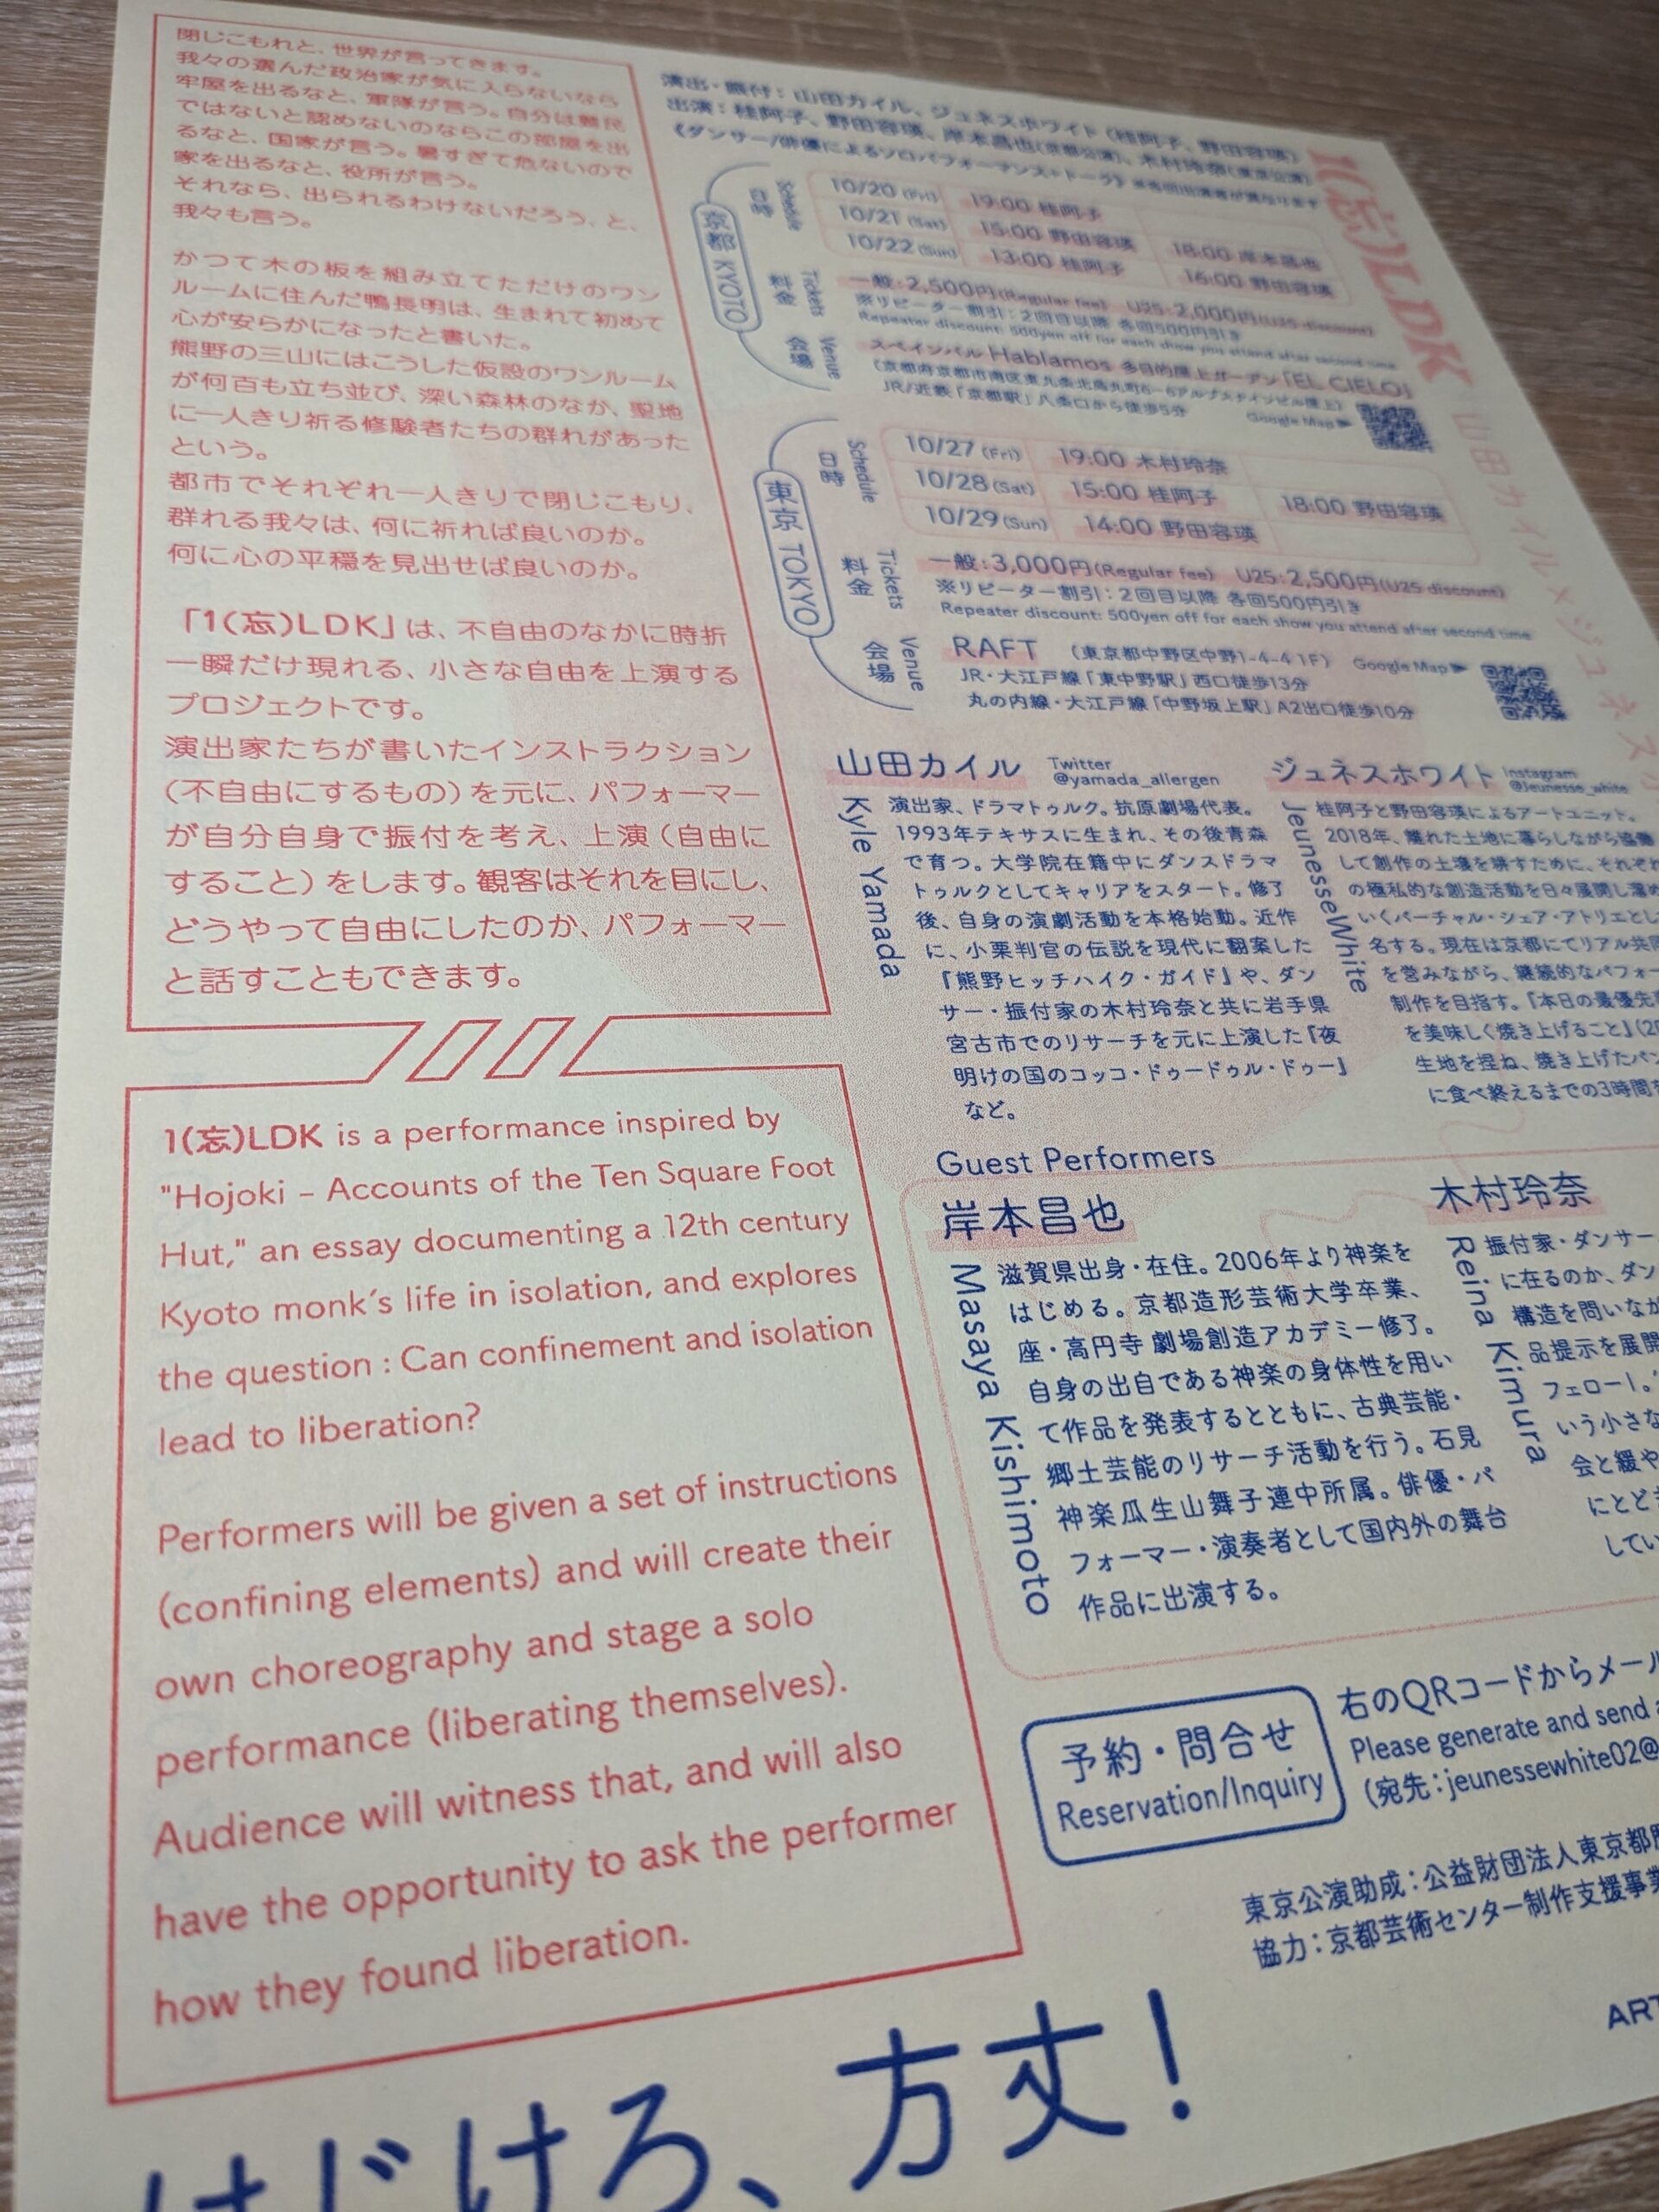 閉じこもれと、世界が言ってきます。
我々の選んだ政治家が気に入らないなら
牢屋を出るなと、軍隊が言う。自分は難民
ではないと認めないのならこの部屋を出
るなと、国家が言う。暑すぎて危ないので
家を出るなと、役所が言う。
それなら、出られるわけないだろう、と、
我々も言う。
かつて木の板を組み立てただけのワン
ルームに住んだ鴨長明は、生まれて初めて
心が安らかになったと書いた。
熊野の三山にはこうした仮設のワンルーム
が何百も立ち並び、深い森林のなか、聖地
に一人きり祈る修験者たちの群れがあった
という。
都市でそれぞれ一人きりで閉じこもり、
群れる我々は、何に祈れば良いのか。
何に心の平穏を見出せば良いのか。
「1(忘)LDK」は、不自由のなかに時折
一瞬だけ現れる、小さな自由を上演する
プロジェクトです。
演出家たちが書いたインストラクション
(不自由にするもの)を元に、パフォーマー
が自分自身で振付を考え、上演(自由に
すること)をします。観客はそれを目にし、
どうやって自由にしたのか、パフォーマー
と話すこともできます。
1(忘)LDK is a performance inspired by
"Hojoki – Accounts of the Ten Square Foot
Hut," an essay documenting a 12th century
Kyoto monk's life in isolation, and explores
the question : Can confinement and isolation
lead to liberation?
Performers will be given a set of instructions
(confining elements) and will create their
own choreography and stage a solo
performance (liberating themselves).
Audience will witness that, and will also
have the opportunity to ask the performer
how they found liberation.
1(忘)LDK
山田カイル×ジュネスホ
演出・振付：山田カイル、ジュネスホワイト(桂阿子、野田容瑛)
出演：桂阿子、野田容瑛、岸本昌也(京都公演)、木村玲奈(東京公演)
《ダンサー/俳優によるソロパフォーマンス+トーク》※各回出演者が異なります
京都 KYOTO
日時 Schedule
10/20 (Fri) 19:00 桂阿子
10/21 (Sat) 15:00 野田容瑛 18:00 岸本昌也
10/22 (Sun) 13:00 桂阿子 16:00 野田容瑛
料金 Tickets
一般：2,500円(Regular fee) U25：2,000円(U25 discount)
※リピーター割引：2回目以降 各回500円引き
Repeater discount: 500yen off for each show you attend after second time
会場 Venue
スペインバル Hablamos 多目的屋上ガーデン「EL CIELO」
(京都府京都市南区東九条北烏丸町6-6アルプスナインビル屋上)
JR/近鉄「京都駅」八条口から徒歩5分 Google Map
東京 TOKYO
日時 Schedule
10/27 (Fri) 19:00 木村玲奈
10/28 (Sat) 15:00 桂阿子 18:00 野田容瑛
10/29 (Sun) 14:00 野田容瑛
料金 Tickets
一般：3,000円(Regular fee) U25：2,500円(U25 discount)
※リピーター割引：2回目以降 各回500円引き
Repeater discount: 500yen off for each show you attend after second time
会場 Venue
RAFT (東京都中野区中野1-4-4 1F) Google Map
JR・大江戸線「東中野駅」西口徒歩13分
丸の内線・大江戸線「中野坂上駅」A2出口徒歩10分
山田カイル Twitter
@yamada_allergen
Kyle Yamada
演出家、ドラマトゥルク。抗原劇場代表。
1993年テキサスに生まれ、その後青森
で育つ。大学院在籍中にダンスドラマ
トゥルクとしてキャリアをスタート。修了
後、自身の演劇活動を本格始動。近作
に、小栗判官の伝説を現代に翻案した
『熊野ヒッチハイク・ガイド』や、ダン
サー・振付家の木村玲奈と共に岩手県
宮古市でのリサーチを元に上演した『夜
明けの国のコッコ・ドゥードゥル・ドゥー』
など。
ジュネスホワイト Instagram
@jeunesse_white
JeunesseWhite
桂阿子と野田容瑛によるアートユニット。
2018年、離れた土地に暮らしながら協働
して創作の土壌を耕すために、それぞれ
の極私的な創造活動を日々展開し溜め
いくバーチャル・シェア・アトリエとし
名する。現在は京都にてリアル共同
を営みながら、継続的なパフォー
制作を目指す。『本日の最優先
を美味しく焼き上げること』(20
生地を捏ね、焼き上げたパン
に食べ終えるまでの3時間を
Guest Performers
岸本昌也
Masaya Kishimoto
滋賀県出身・在住。2006年より神楽を
はじめる。京都造形芸術大学卒業、
座・高円寺 劇場創造アカデミー修了。
自身の出自である神楽の身体性を用い
て作品を発表するとともに、古典芸能・
郷土芸能のリサーチ活動を行う。石見
神楽瓜生山舞子連中所属。俳優・パ
フォーマー・演奏者として国内外の舞台
作品に出演する。
木村玲奈
Reina Kimura
振付家・ダンサー
に在るのか、ダン
構造を問いなが
品提示を展開
フェローⅠ。
いう小さな
会と緩や
にとど
してい
予約・問合せ
Reservation/Inquiry
右のQRコードからメール
Please generate and send
(宛先：jeunessewhite02@
東京公演助成：公益財団法人東京都
協力：京都芸術センター制作支援事業
ART
はじけろ、方丈！